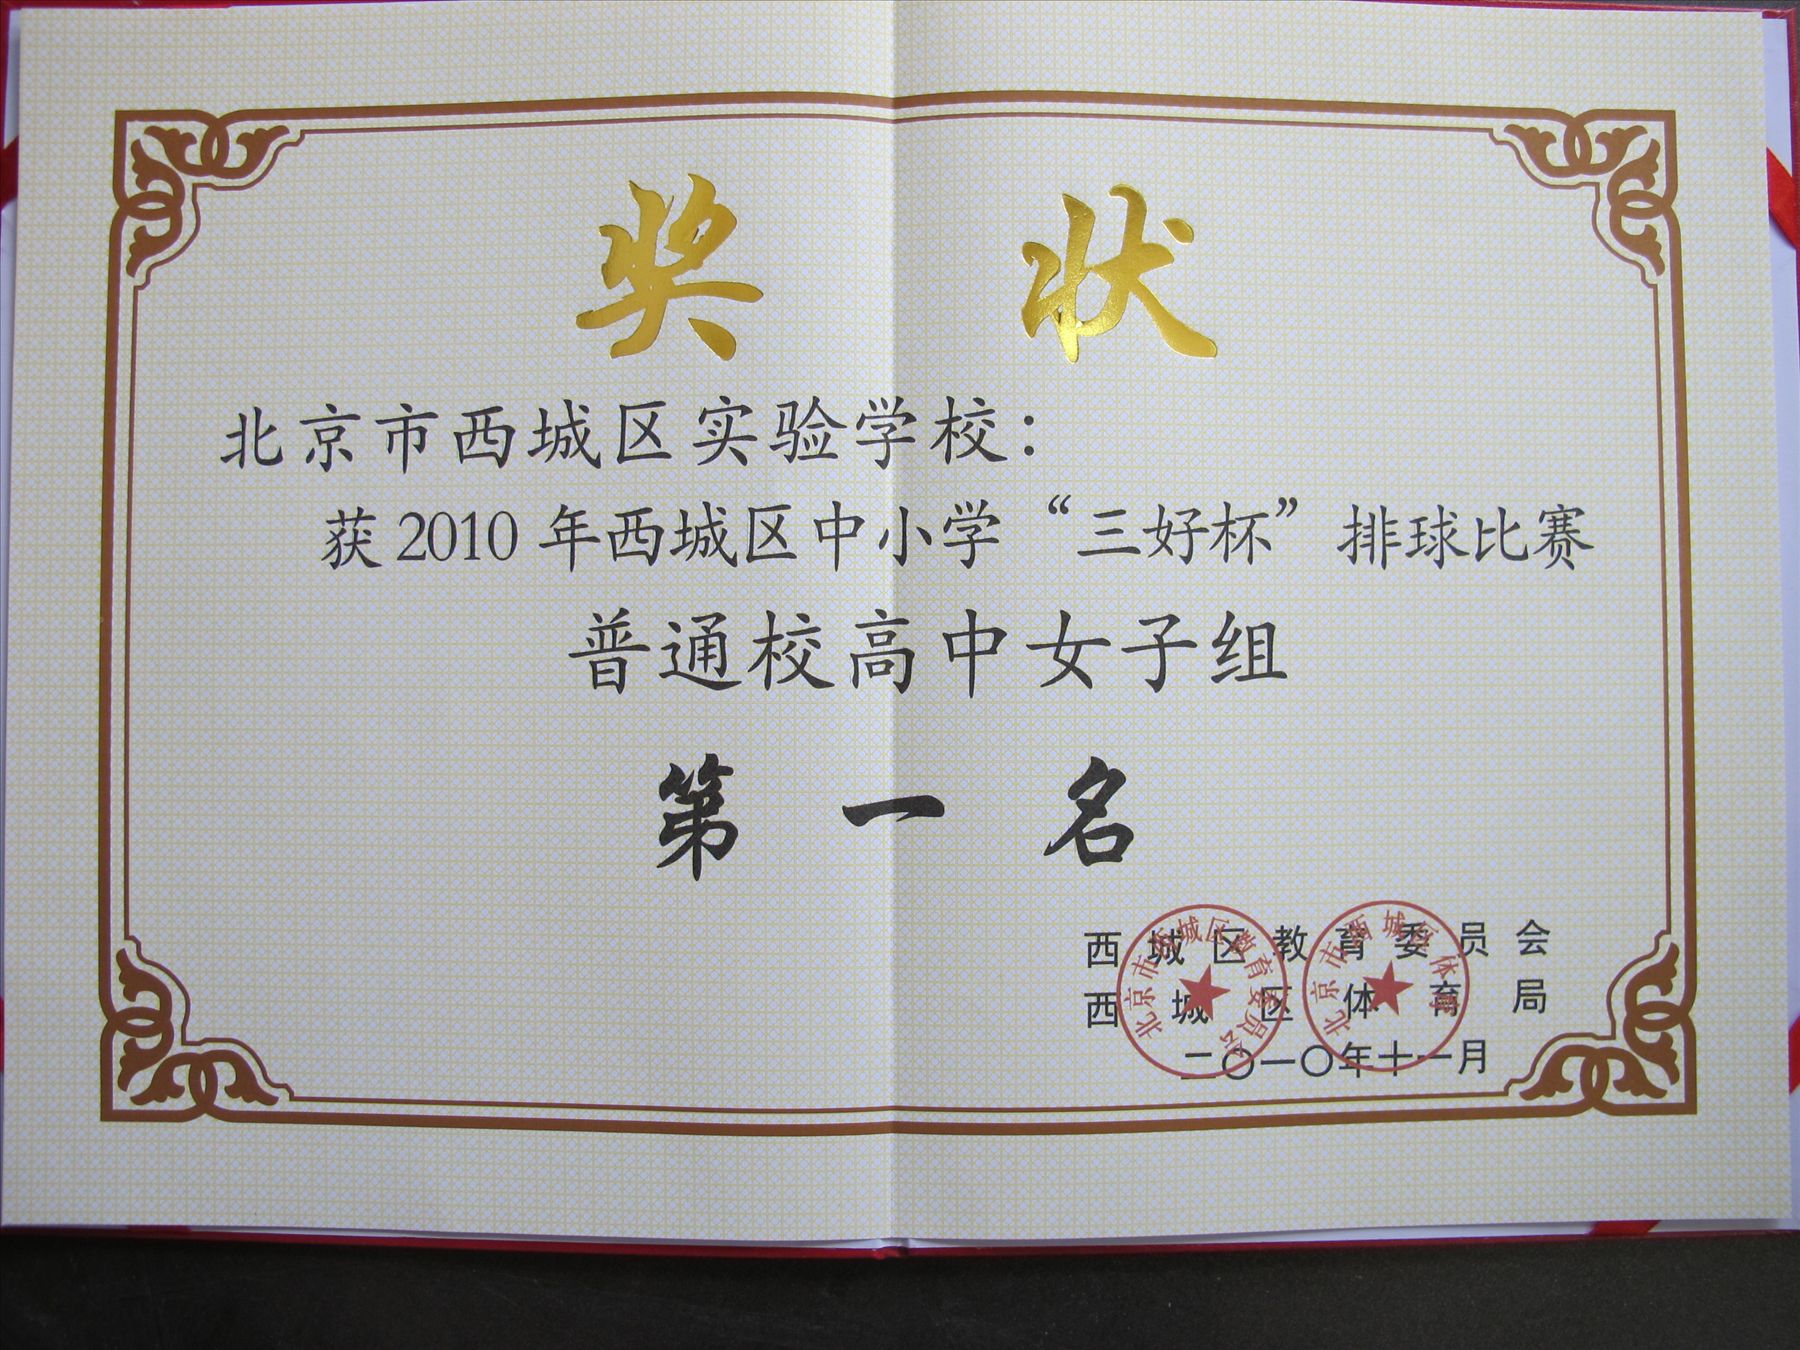 奖状
北京市西城区实验学校：
获2010年西城区中小学“三好杯”排球比赛
普通校高中女子组
第一名
西城区教育委员会
西城区体育局
二〇一〇年十一月
北京市西城区教育委员会
北京市西城区体育局